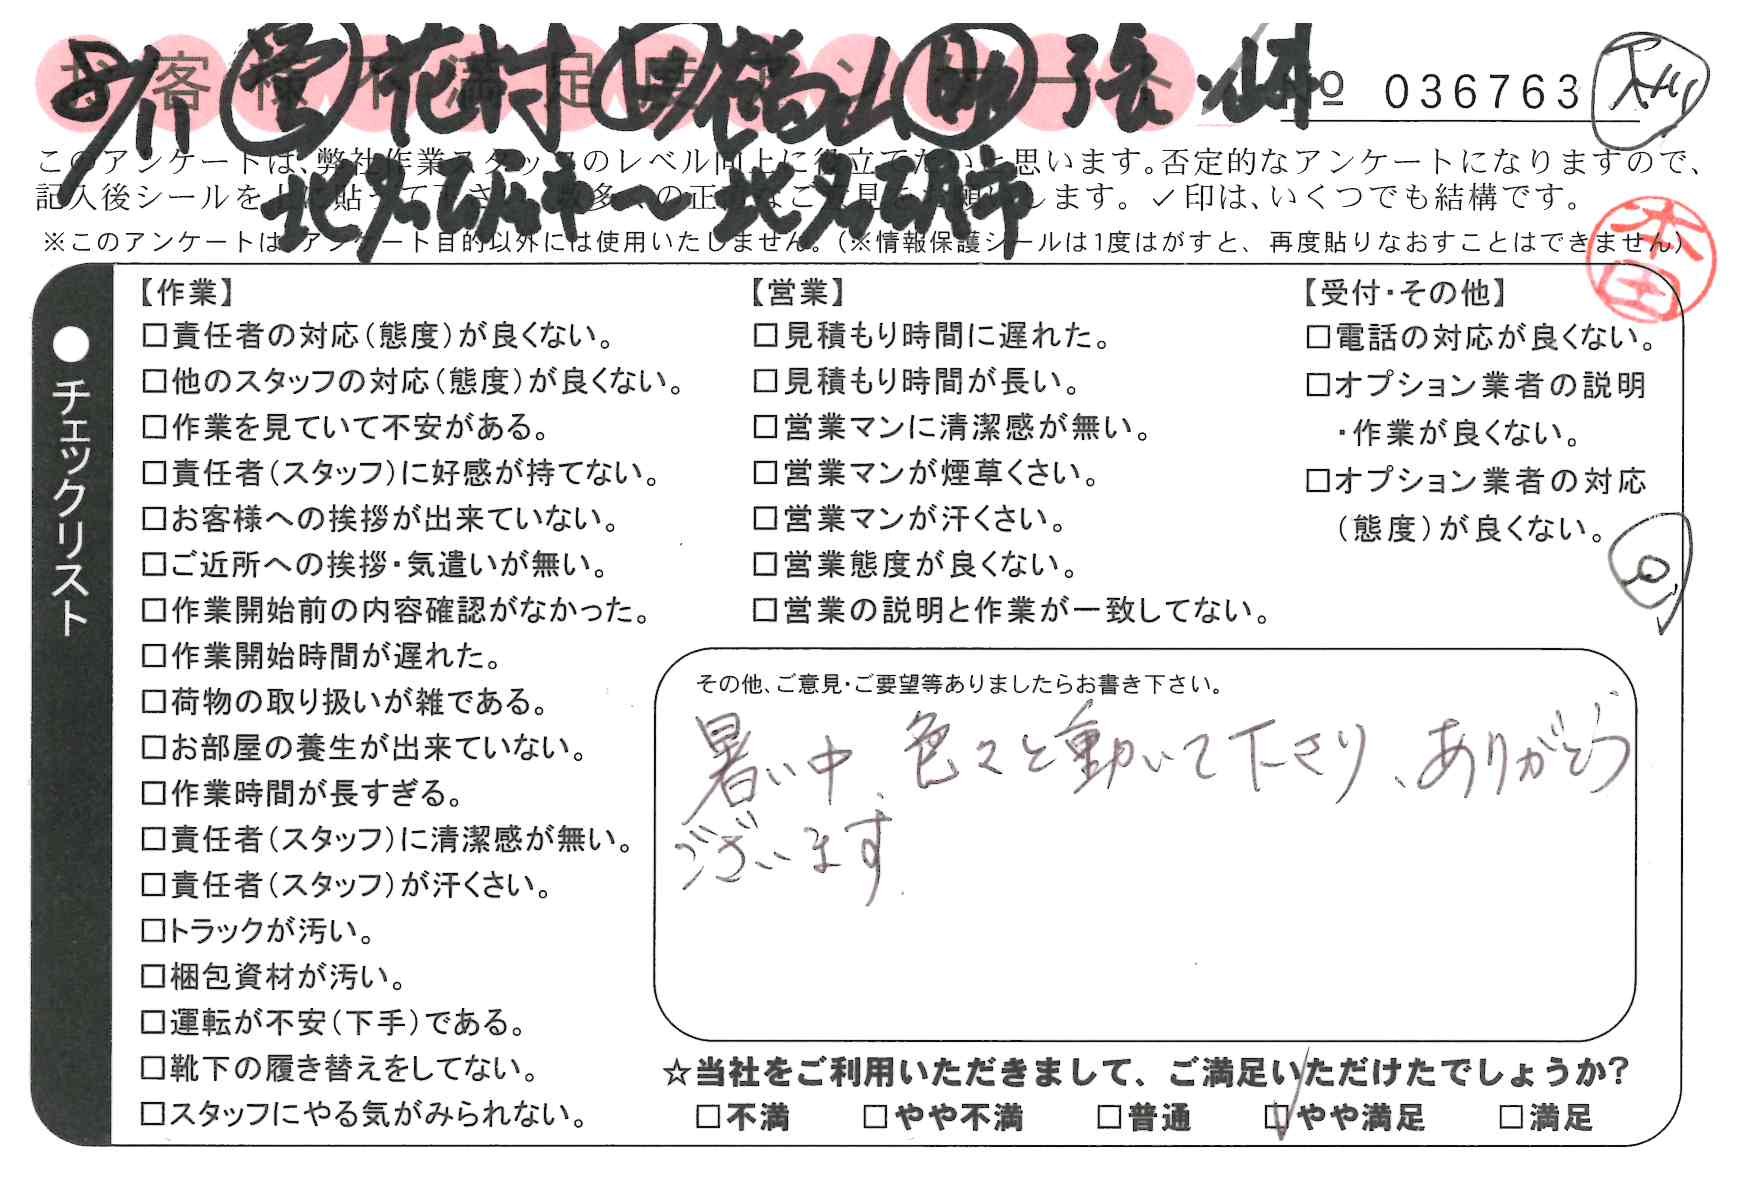 お客様不満足度アンケート
8/11 営 花村 作 福山 助 張・山本
№ 036763
このアンケートは、弊社作業スタッフのレベル向上に役立てたいと思います。否定的なアンケートになりますので、
記入後シールを上に貼って下さい。数多くの正直なご意見をお願いします。✓印は、いくつでも結構です。
北名古屋市〜北名古屋市
※このアンケートは、アンケート目的以外には使用いたしません。(※情報保護シールは1度はがすと、再度貼りなおすことはできません)
本田
●チェックリスト
【作業】
□責任者の対応(態度)が良くない。
□他のスタッフの対応(態度)が良くない。
□作業を見ていて不安がある。
□責任者(スタッフ)に好感が持てない。
□お客様への挨拶が出来ていない。
□ご近所への挨拶・気遣いが無い。
□作業開始前の内容確認がなかった。
□作業開始時間が遅れた。
□荷物の取り扱いが雑である。
□お部屋の養生が出来ていない。
□作業時間が長すぎる。
□責任者(スタッフ)に清潔感が無い。
□責任者(スタッフ)が汗くさい。
□トラックが汚い。
□梱包資材が汚い。
□運転が不安(下手)である。
□靴下の履き替えをしてない。
□スタッフにやる気がみられない。
【営業】
□見積もり時間に遅れた。
□見積もり時間が長い。
□営業マンに清潔感が無い。
□営業マンが煙草くさい。
□営業マンが汗くさい。
□営業態度が良くない。
□営業の説明と作業が一致してない。
【受付・その他】
□電話の対応が良くない。
□オプション業者の説明
・作業が良くない。
□オプション業者の対応
(態度)が良くない。
その他、ご意見・ご要望等ありましたらお書き下さい。
暑い中、色々と動いて下さり、ありがとう
ございます
☆当社をご利用いただきまして、ご満足いただけたでしょうか?
□不満 □やや不満 □普通 ☑やや満足 □満足